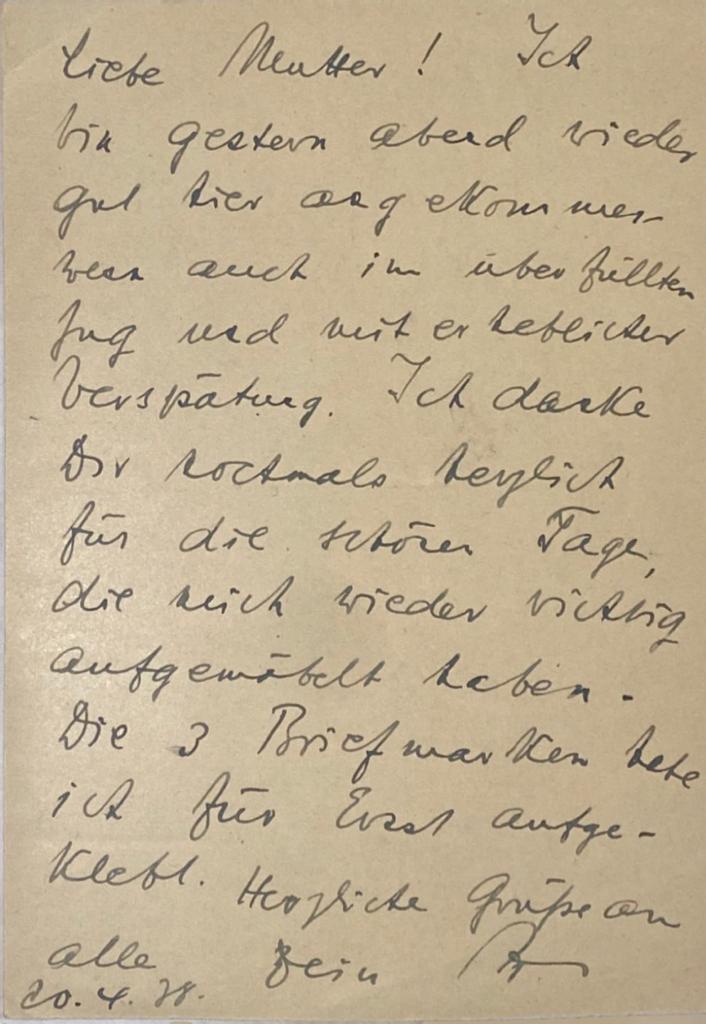 Liebe Mutter! Ich
bin gestern abend wieder
gut hier angekommen
wenn auch im überfüllten
Zug und mit erheblicher
Verspätung. Ich danke
Dir nochmals herzlich
für die schönen Tage,
die mich wieder richtig
aufgemöbelt haben.
Die 3 Briefmarken habe
ich für Ernst aufge-
klebt. Herzliche Grüße an
alle Dein
20.4.38.